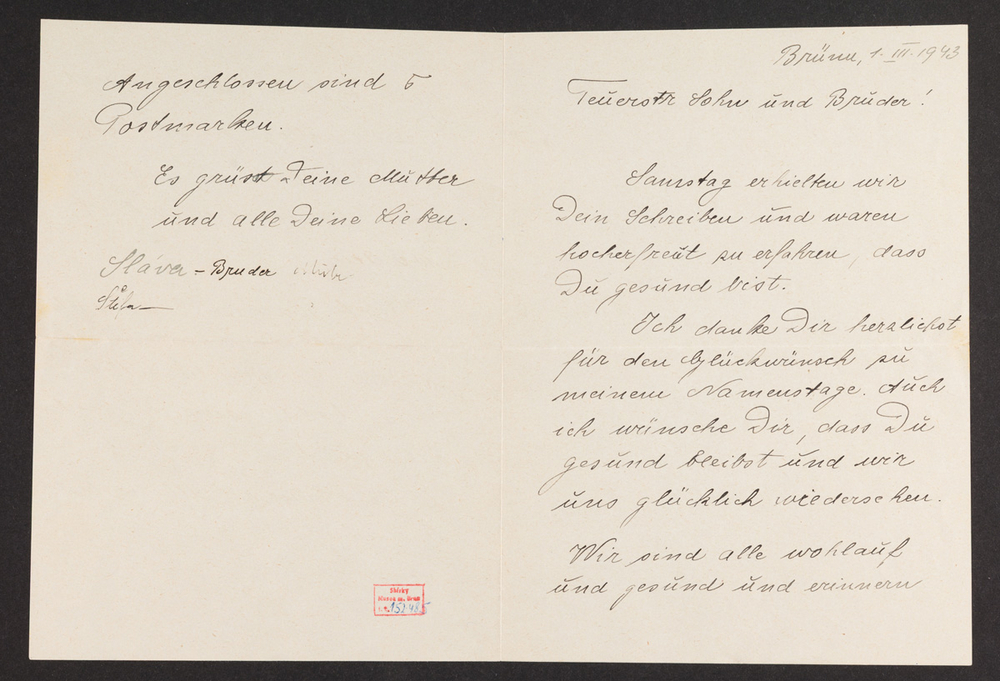 Brünn, 1. III. 1943
Teuerstr Sohn und Bruder!
Samstag erhielten wir
Dein Schreiben und waren
hocherfreut zu erfahren, dass
Du gesund bist.
Ich danke Dir herzlichst
für den Glückwunsch zu
meinem Namenstage. Auch
ich wünsche Dir, dass Du
gesund bleibst und wir
uns glücklich wiedersehen.
Wir sind alle wohlauf
und gesund und erinnern
Angeschlossen sind 5
Postmarken.
Es grüsst Deine Mutter
und alle Deine Lieben.
Sláva - Bruder
Sbírky